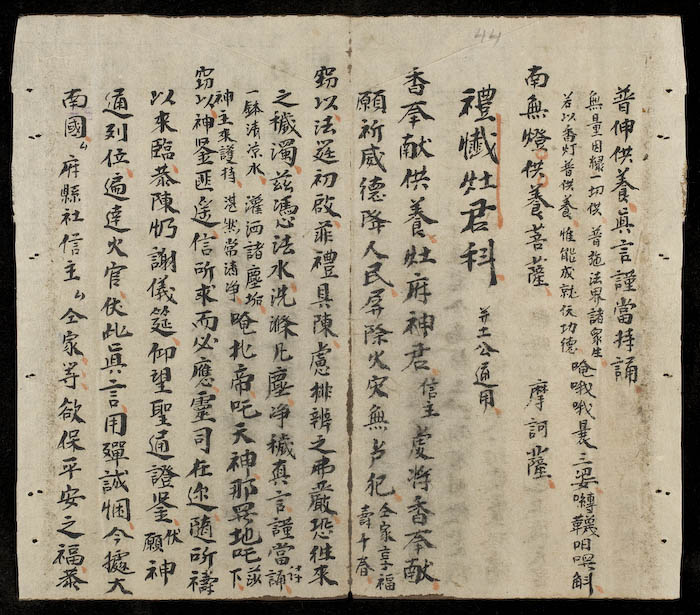 44
普伸供養真言謹當持誦
無量因緣一切供 普施法界諸衆生
若以香灯普供養 惟能成就伝功德 唵哦哦曩三婆囀韈日囉斛
南無燈供養菩薩 摩訶薩
禮懺灶君科 并土公通用
香奉献供養灶府神君 信主虔将香奉献
願祈威德降人民屏除火灾無灾犯 全家享福壽千春
窃以法筵初啟菲禮具陳慮排辨之弗嚴恐往來
之穢濁兹憑法水洗滌凡塵净穢真言謹當持誦
一鉢清凉水 灌洒諸塵垢
神主來護持 湛然常清净 唵扎帝吒天神那羅地吒莎下
窃以神鉴匪遥信所求而必應靈司在迩随所禱
以來臨恭陳灼謝儀筵仰望聖通證鉴伏願神
通列位遍達火官伏此真言用殫誠悃今據大
南國厶府縣社信主厶仝家等欲保平安之福恭